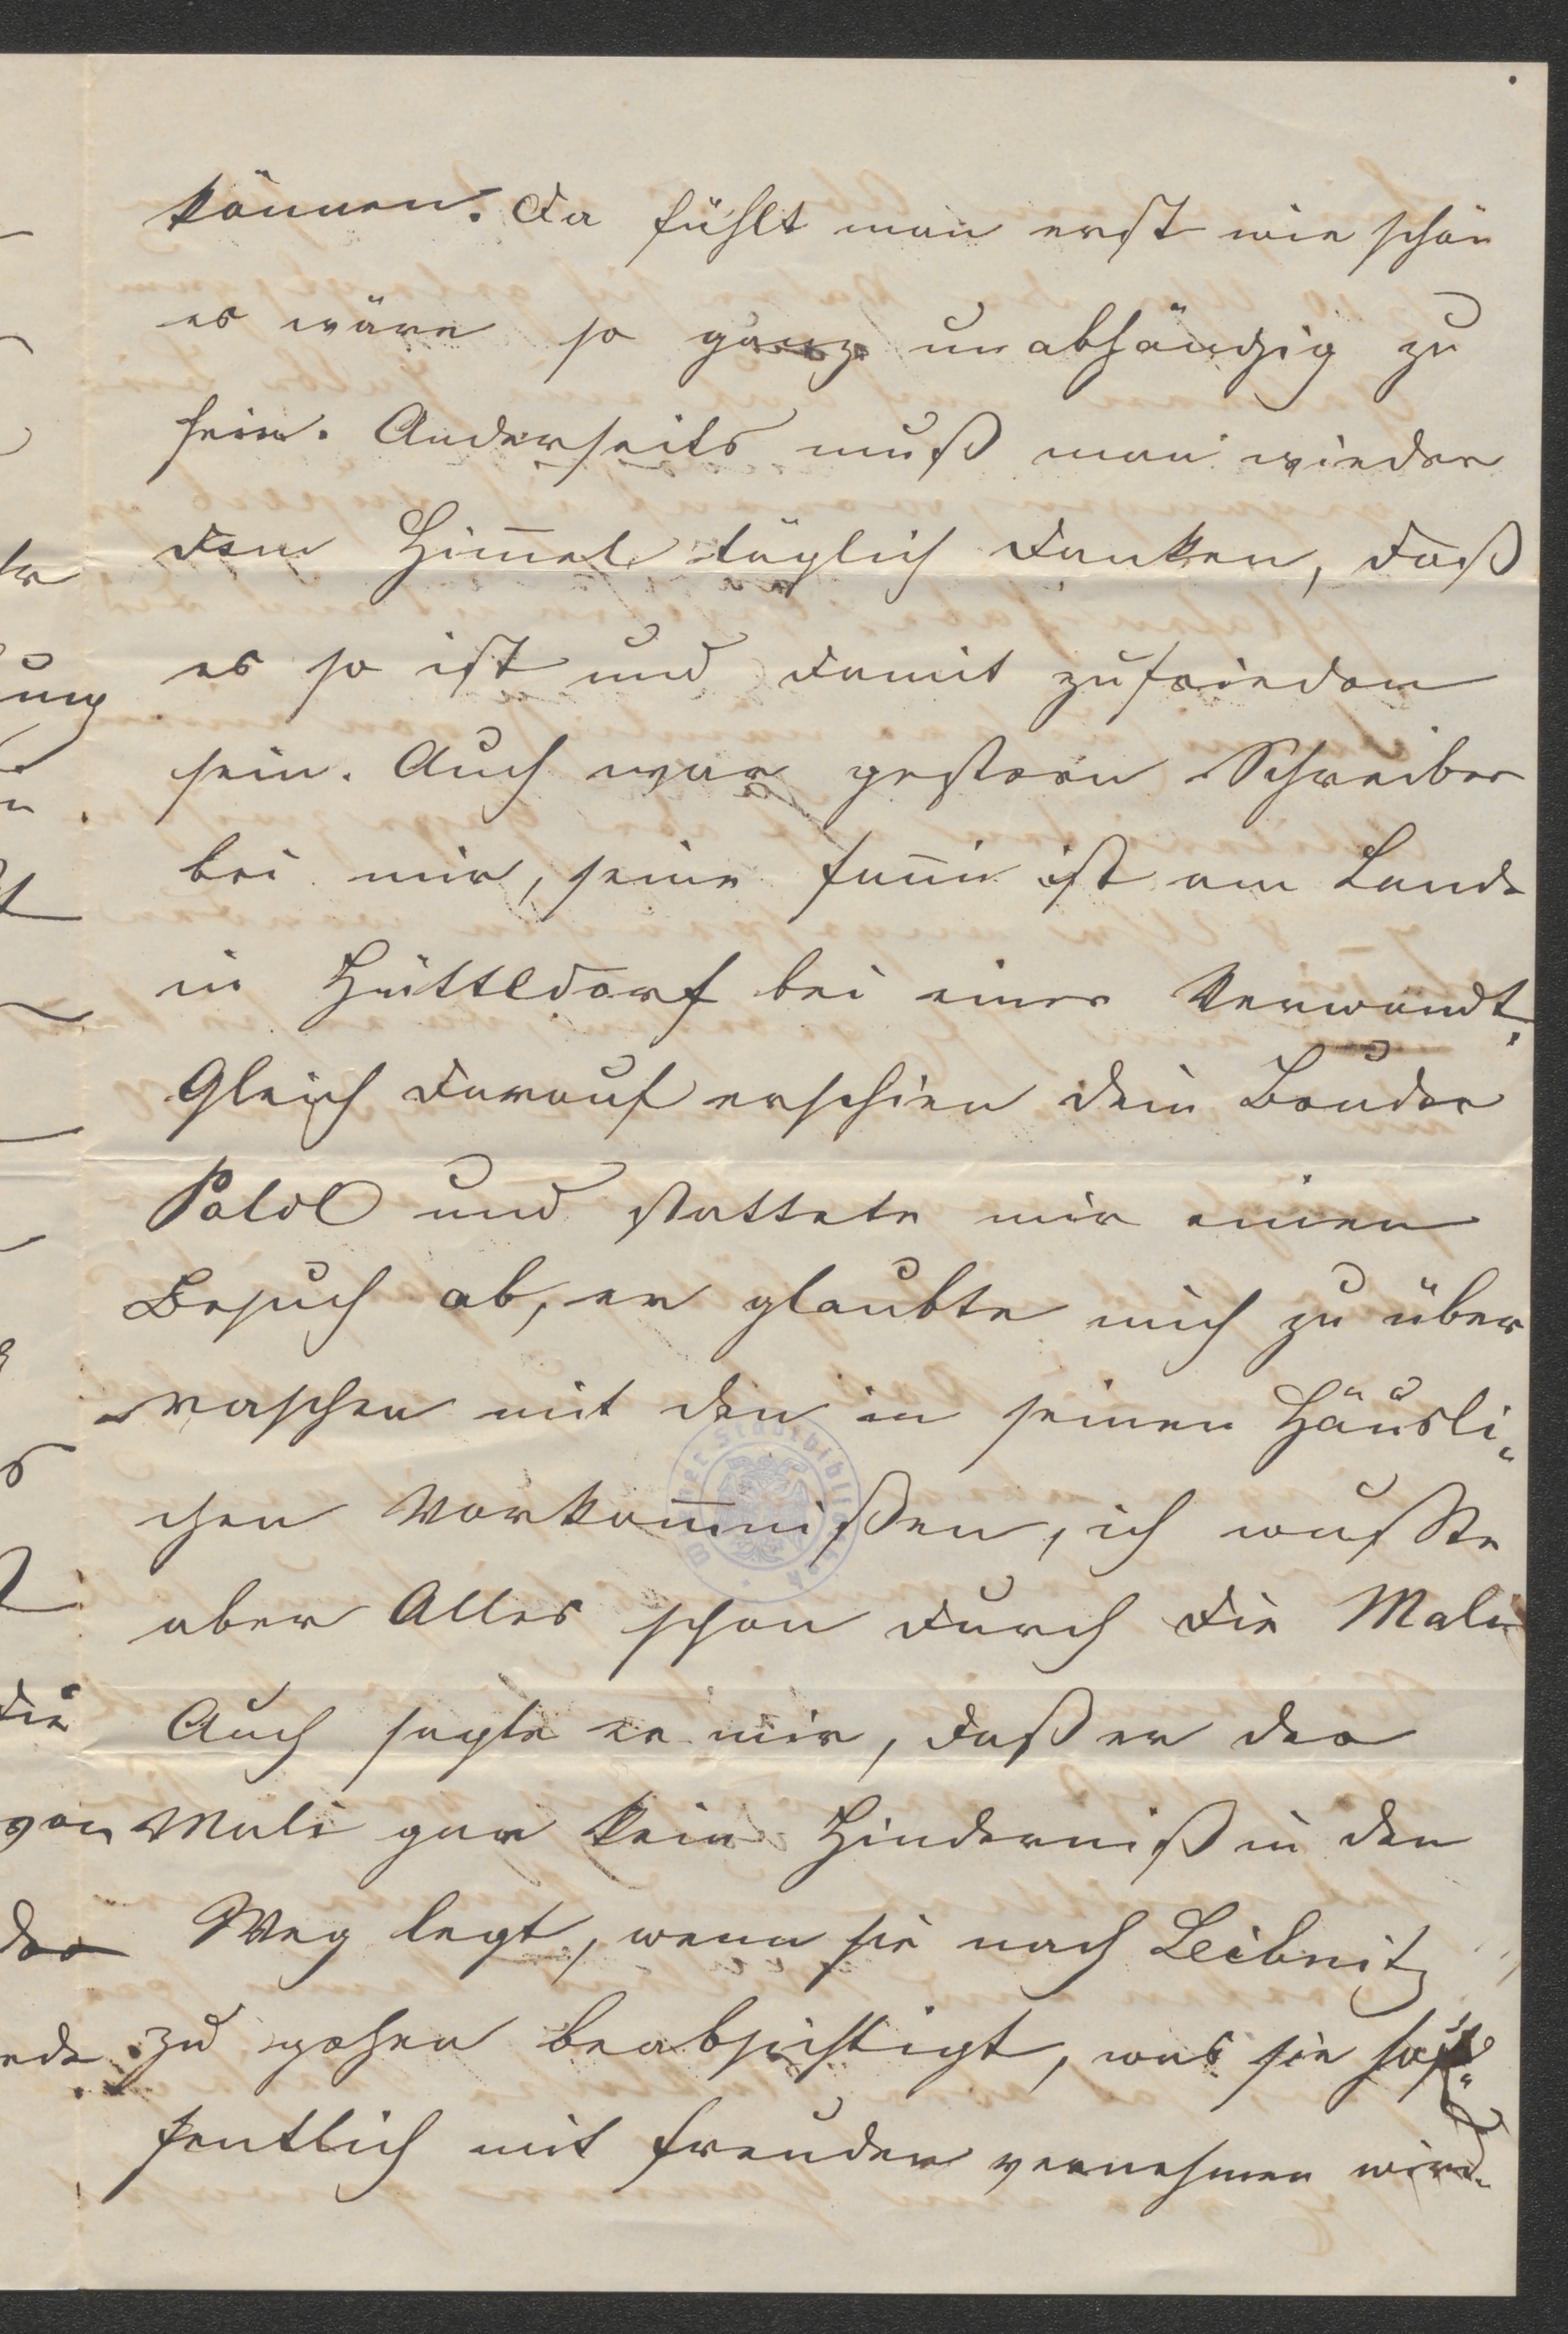 können. Da fühlt man erst wie schön
es wäre so ganz unabhändgig zu
sein. Anderseits muß man wieder
dem Him̅el täglich danken, daß
es so ist und damit zufrieden
sein. Auch war gestern Schreiber
bei mir, seine Fan̅i ist am Lande
in Hüttldorf bei einer Verwandt.
Gleich darauf erschien dein Bruder
Poldl und stattete mir einen
Besuch ab, er glaubte mich zu über
raschen mit den in seinen Häusli„
chen Vorkom̅nißen, ich wußte
aber Alles schon durch die Mali
Auch sagte er mir, daß er der
Mali gar kein Hinderniß in den
Weg legt, wenn sie nach Leibnitz
zu gehen beabsichtigt, was sie hof„
fentlich mit Freuden vernehmen wird.
die
von
der